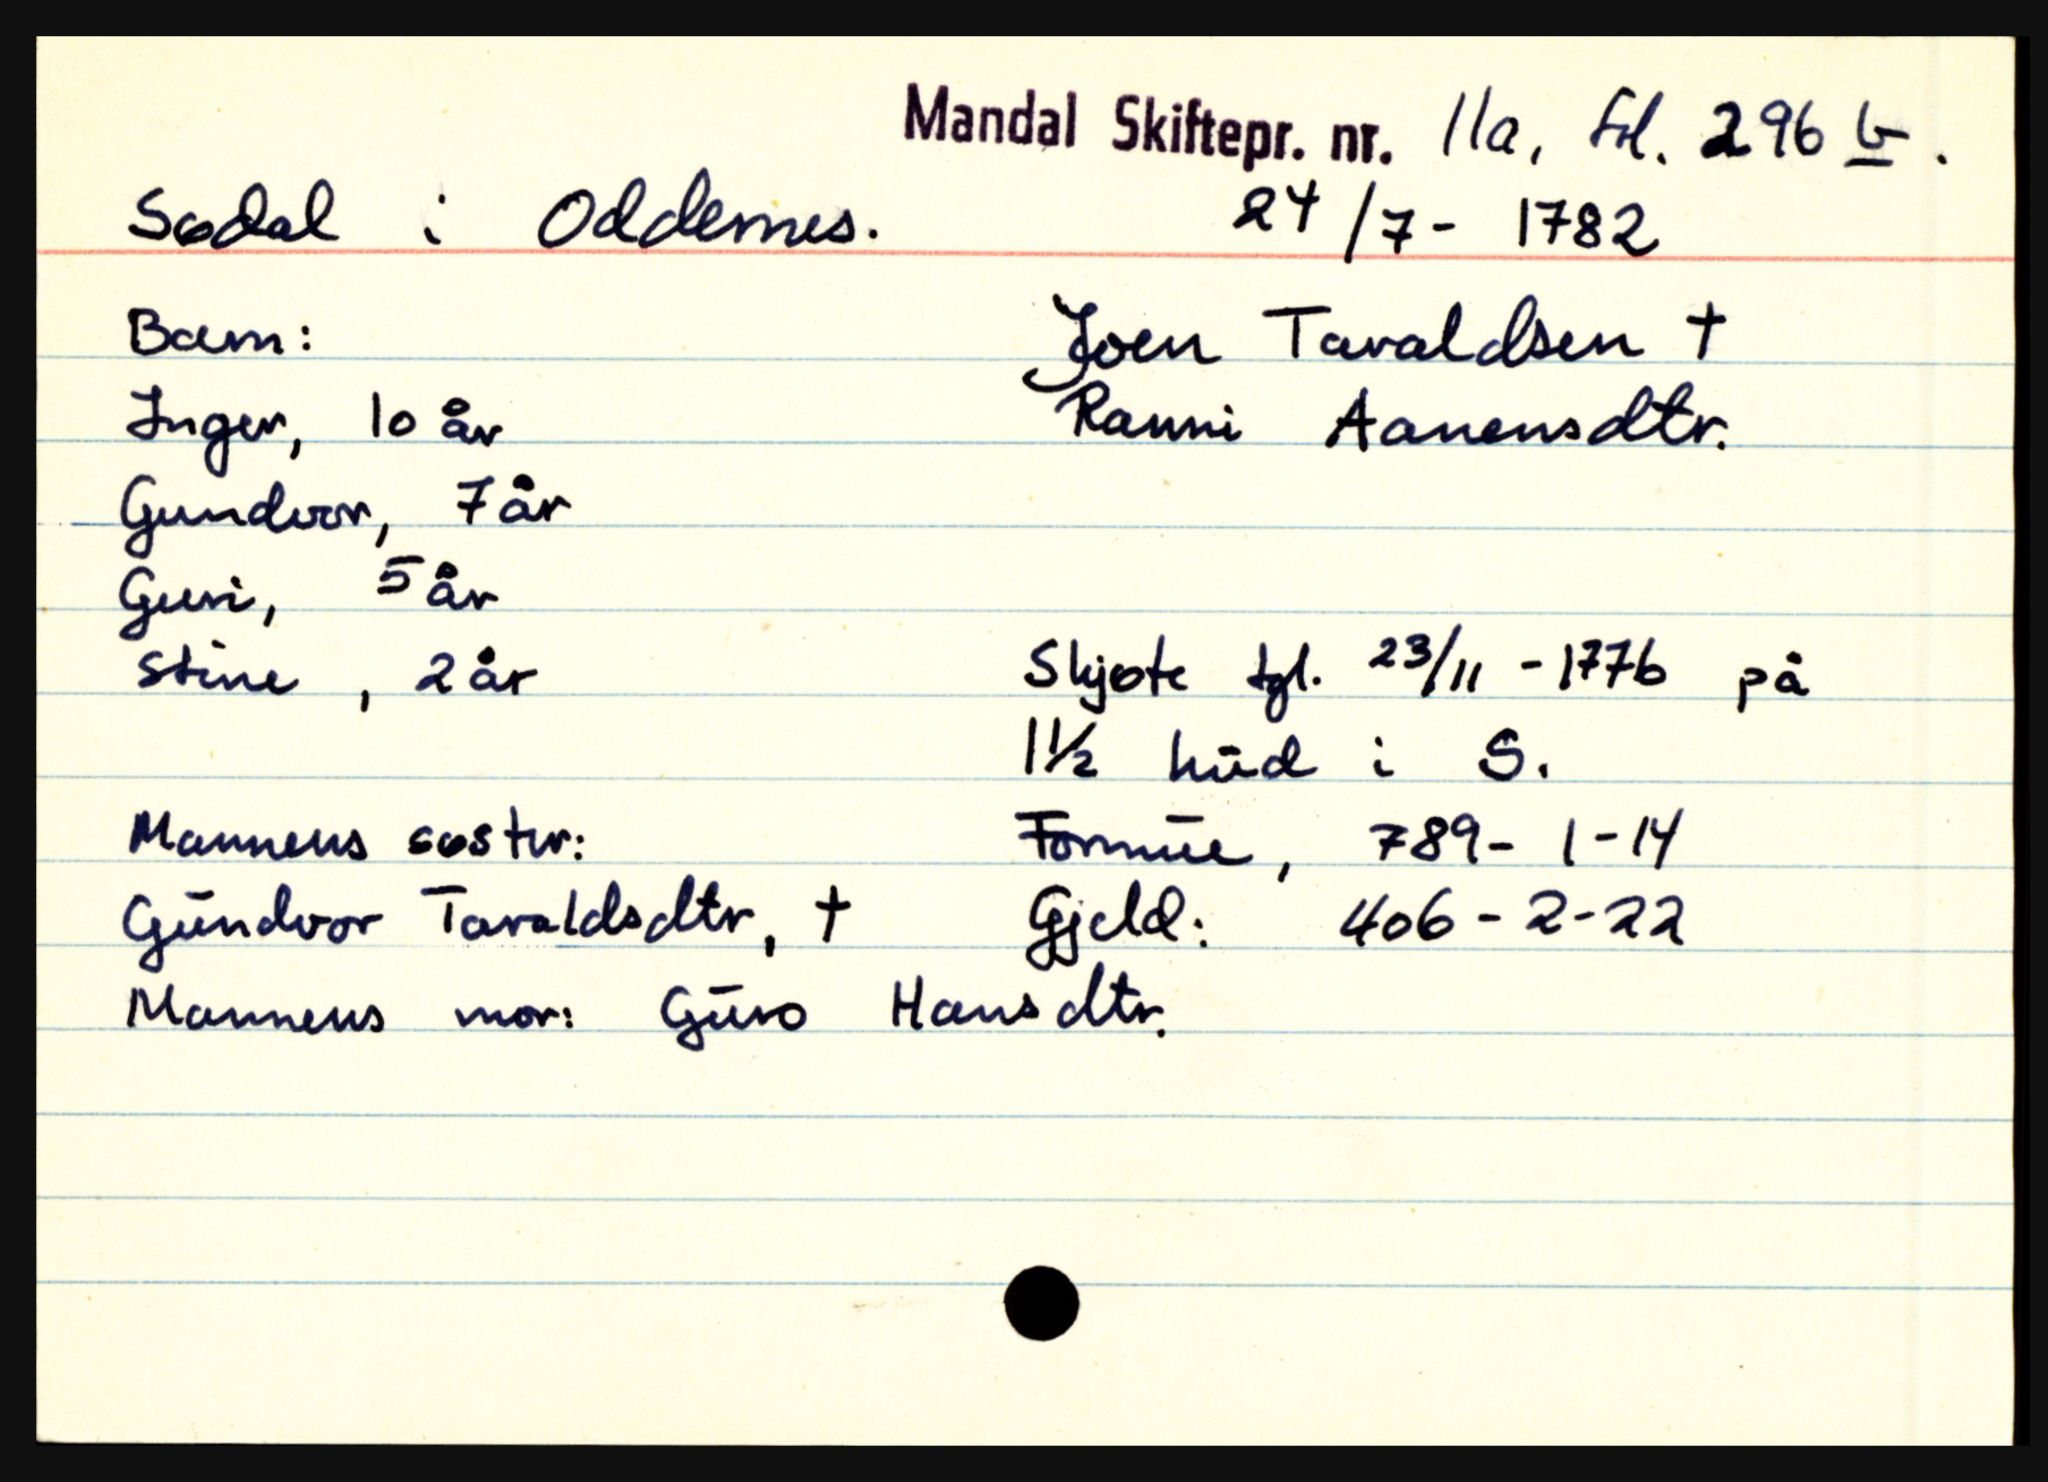 Mandal Skiftepr. nr. 11a, fol. 296 b.
Sødal i Oddernes. 24/7 - 1782
Barn: Joen Tavaldsen †
Inger, 10 år Ranni Aanensdtr.
Gundvor, 7 år
Guri, 5 år
Stine, 2 år Skjøte tgl. 23/11 - 1776 på
1½ hud i S.
Mannens søster: Formue, 789 - 1 - 14
Gundvor Tavaldsdtr, † Gjeld: 406 - 2 - 22
Mannens mor: Guro Hansdtr.